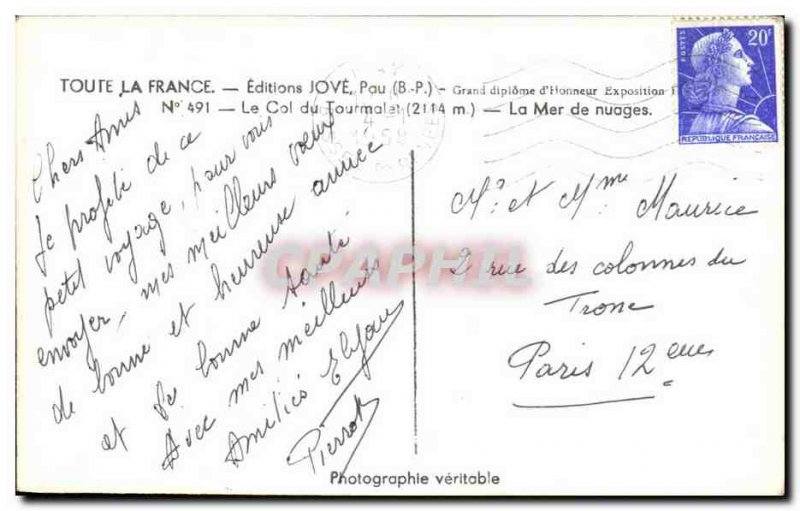 TOUTE LA FRANCE. — Éditions JOVÉ, Pau (B.-P.) - Grand diplôme d'Honneur Exposition
N° 491 — Le Col du Tourmalet (2114 m.) — La Mer de nuages.
POSTES
20F
REPUBLIQUE FRANÇAISE
Chers Amis
Je profite de ce
petit voyage, pour vous
envoyer, mes meilleurs vœux
de bonne et heureuse année
et de bonne santé
Avec mes meilleures
Amitiés
Pierrot
Mr. et Mme Maurice
2 rue des colonnes du
Trone
Paris 12eme
CPAPHIL.COM
Photographie véritable